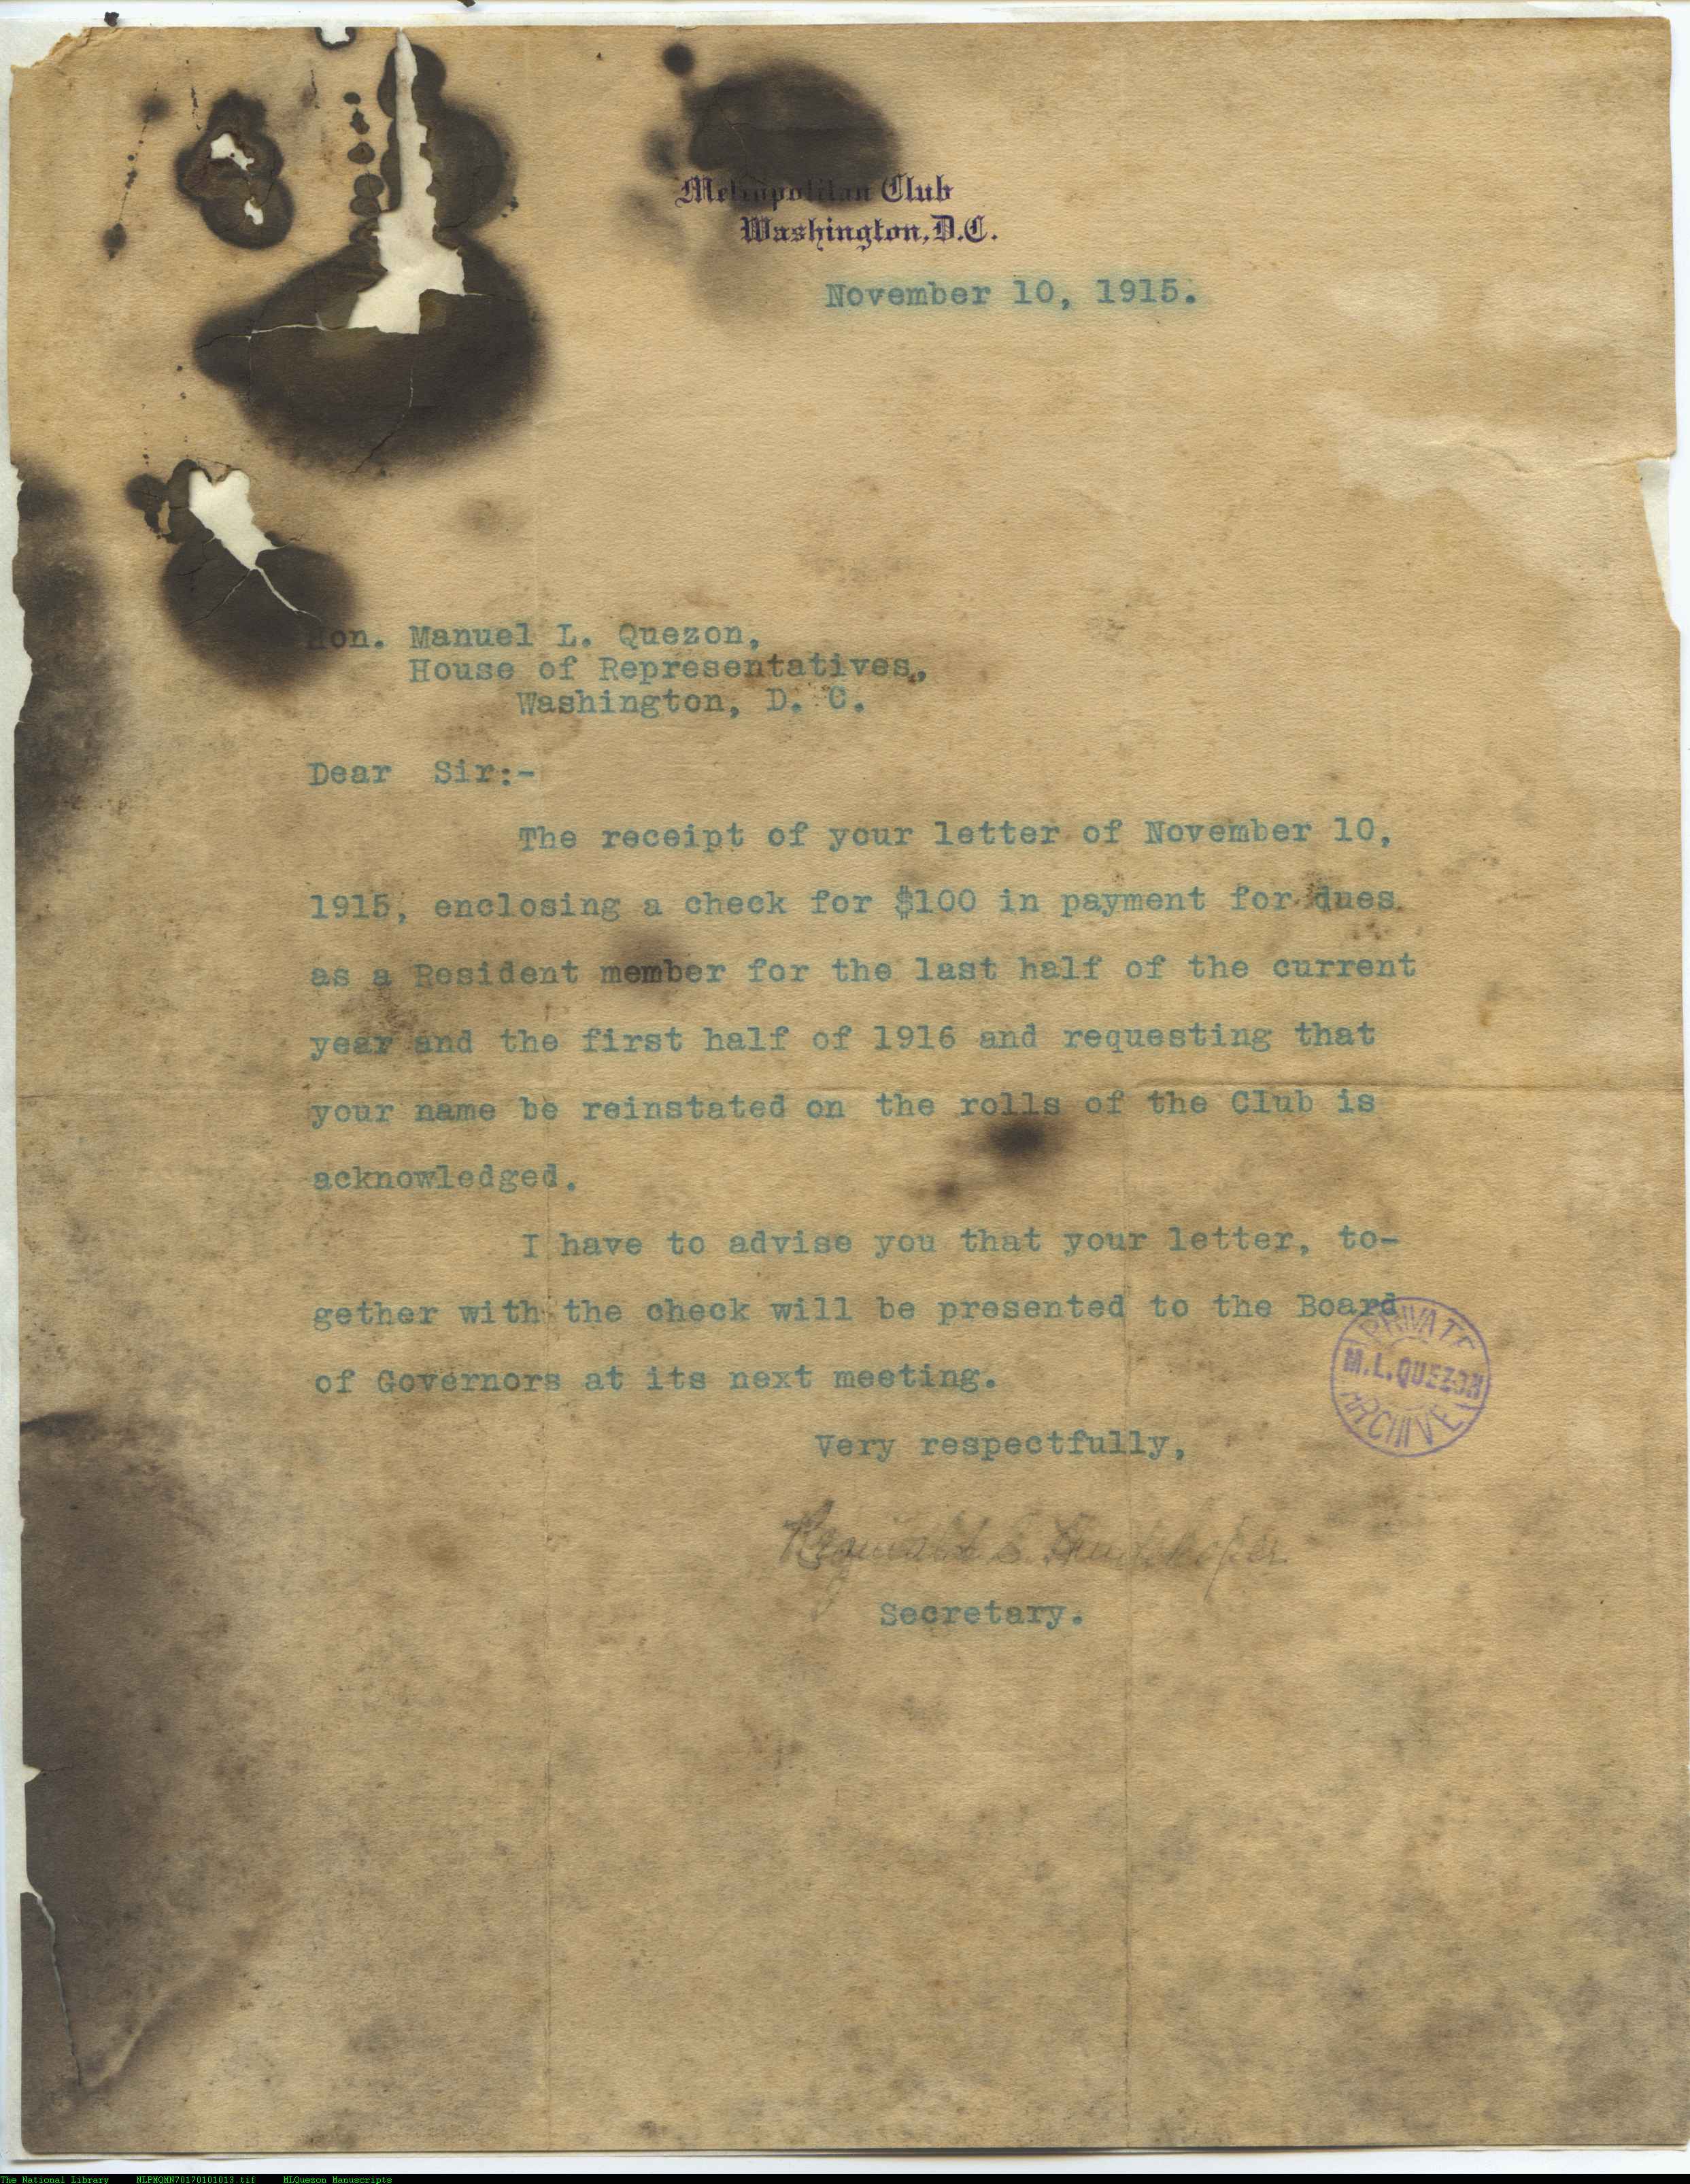 Metropolitan Club
Washington, D.C.
November 10, 1915.
Hon. Manuel L. Quezon,
House of Representatives,
Washington, D. C.
Dear Sir:-
The receipt of your letter of November 10,
1915, enclosing a check for $100 in payment for dues
as a Resident member for the last half of the current
year and the first half of 1916 and requesting that
your name be reinstated on the rolls of the Club is
acknowledged.
I have to advise you that your letter, to-
gether with the check will be presented to the Board
of Governors at its next meeting.
PRIVATE
M.L.QUEZON
ARCHIVE
Very respectfully,
Reginald S.
Secretary.
The National Library NLPMQMN70170101013.tif MLQuezon Manuscripts